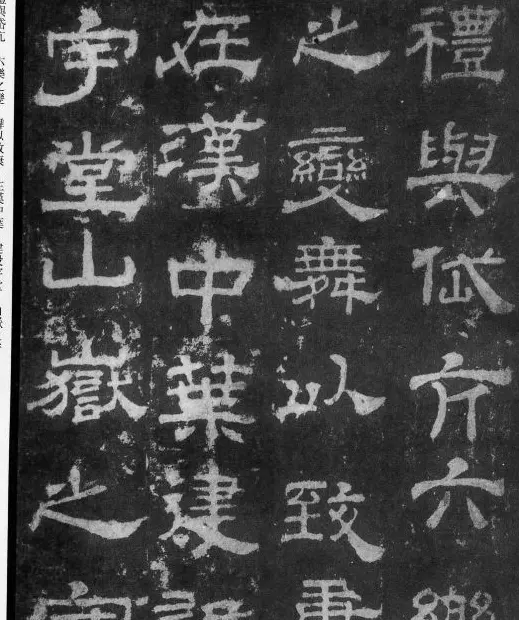 禮與岱亢六樂
之變舞以致康
在漢中葉建設
宇堂山嶽之守